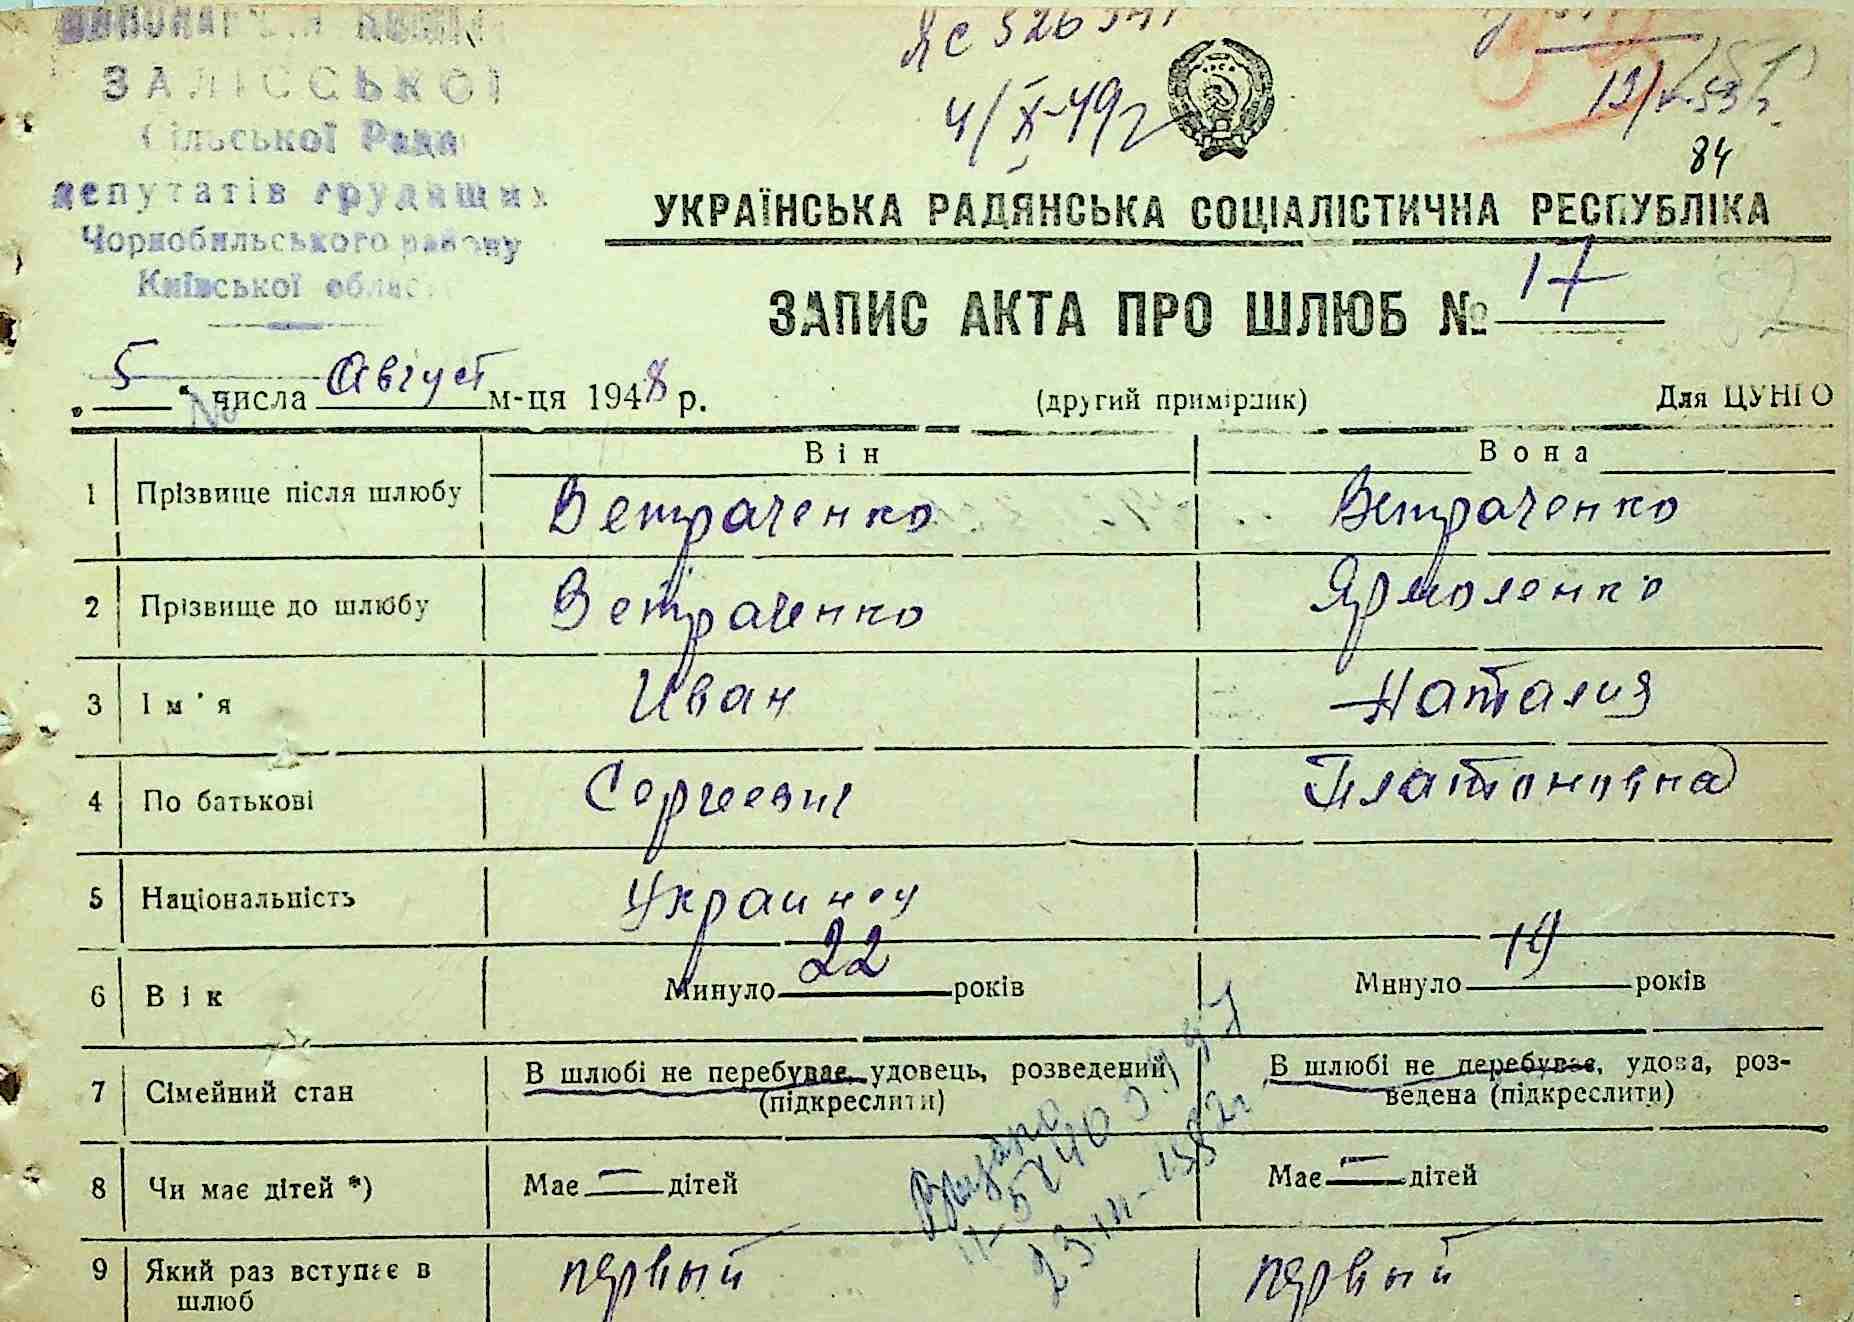 ЗАЛІССЬКОЇ
Сільської Ради
депутатів трудящих
Чорнобильського району
Київської області
4/X-49г
84
УКРАЇНСЬКА РАДЯНСЬКА СОЦІАЛІСТИЧНА РЕСПУБЛІКА
ЗАПИС АКТА ПРО ШЛЮБ № 17
„5“ числа Август м-ця 1948 р. (другий примірник) Для ЦУНГО
Він Вона
1 Прізвище після шлюбу Ветраченко Ветраченко
2 Прізвище до шлюбу Ветраченко Ярмоленко
3 Ім'я Иван Наталия
4 По батькові Сергеевич Платоновна
5 Національність Украинец
6 Вік Минуло 22 років Минуло 19 років
7 Сімейний стан В шлюбі не перебуває, удовець, розведений (підкреслити) В шлюбі не перебуває, удова, розведена (підкреслити)
8 Чи має дітей *) Має — дітей Має — дітей
9 Який раз вступає в шлюб первый первый